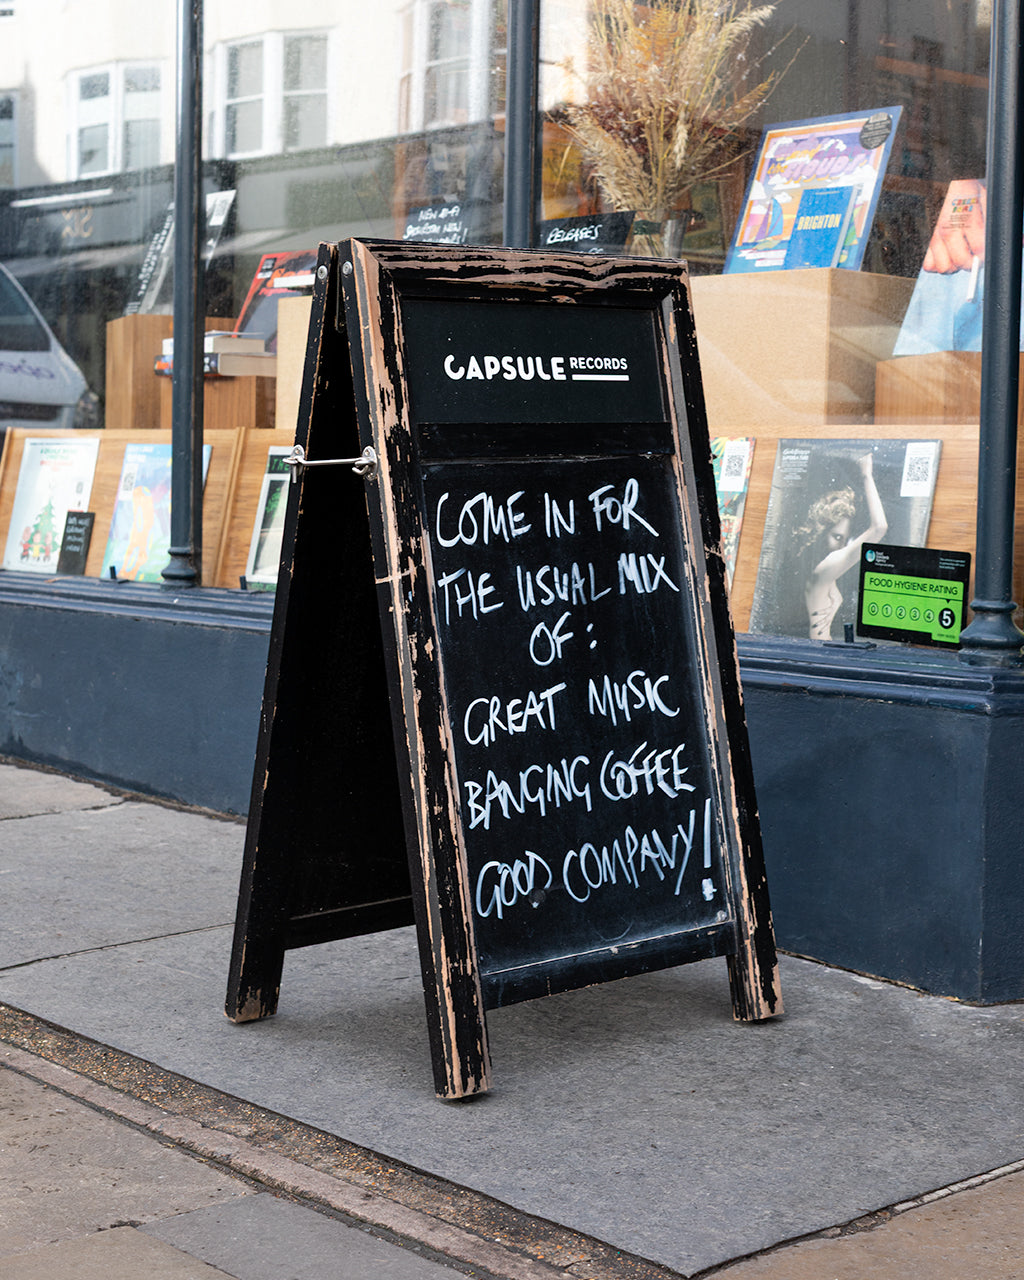 CAPSULE RECORDS
COME IN FOR
THE USUAL MIX
OF:
GREAT MUSIC
BANGING COFFEE
GOOD COMPANY!
NEW
RELEASES
BRIGHTON
FOOD HYGIENE RATING
0 1 2 3 4 5